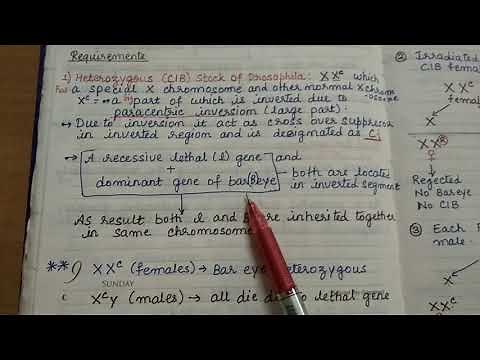 Requirements
1) Heterozygous (ClB) Stock of Drosophila: X X^c which
has a special X chromosome and other normal X chromosome
X^c = a part of which is inverted due to
paracentric inversion (large part).
↪ Due to inversion it act as cross over suppressor
in inverted region and is designated as C.
→ A recessive lethal (l) gene and
+
dominant gene of bar B eye
both are located
in inverted segment
As result both l and B are inherited together
in same chromosome
** XX^c (females) → Bar eye heterozygous
SUNDAY
X^c y (males) → all die due to lethal gene
② Irradiated
ClB fema
X
X X^c
fema
X X
♀
Rejected
No Bareye
No ClB
③ Each F
male.
X X^c